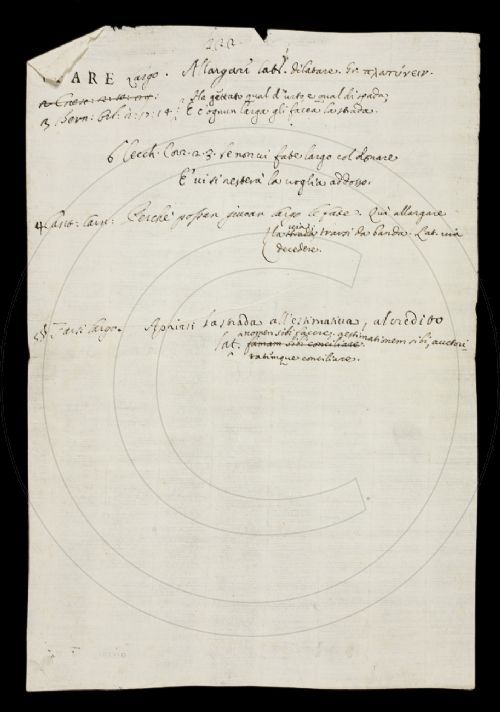 222.
ARE Largo. Allargare lat. dilatare. Gr. πλατύνειν.
3. Bern: Orl: 2: 17: 14: Ha gettato qual d'urto e qual di spada;
E ogn'un larga gli facea la strada.
6 Cecch. Corr. 2. 3. Se non vi fate largo col donare
E' vi si resterà la voglia addosso.
4 Cant. Carn: Perchè possan giucar largo le fate. Qui allargare
la via strada, trarsi da banda. Lat. via
decedere.
5 Farsi largo. Aprirsi la strada all'estimativa, al credito
nomen sibi facere, existimationem sibi, auctori-
Lat. famam sibi conciliare.
tatemque conciliare.